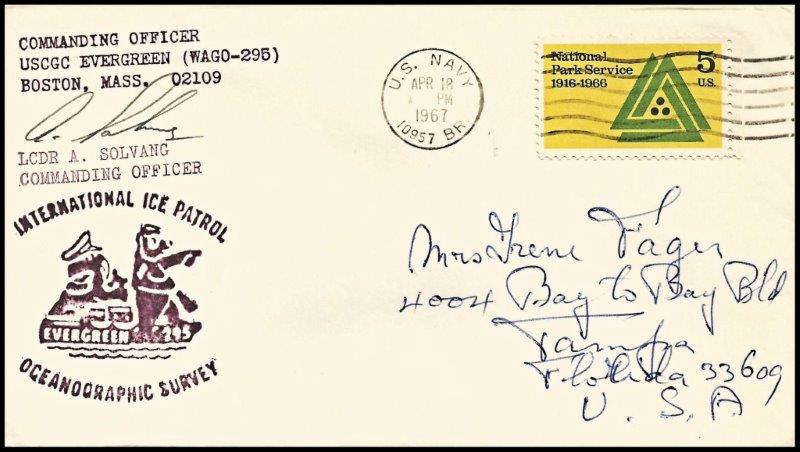 COMMANDING OFFICER
USCGC EVERGREEN (WAGO-295)
BOSTON, MASS. 02109
LCDR A. SOLVANG
COMMANDING OFFICER
INTERNATIONAL ICE PATROL
EVERGREEN 295
OCEANOGRAPHIC SURVEY
U.S. NAVY
APR 18
PM
1967
10957 BR.
National
Park Service
1916-1966
5
U.S.
Mrs Irene Tager
4004 Bay to Bay Bld
Tampa
Florida 33609
U.S.A